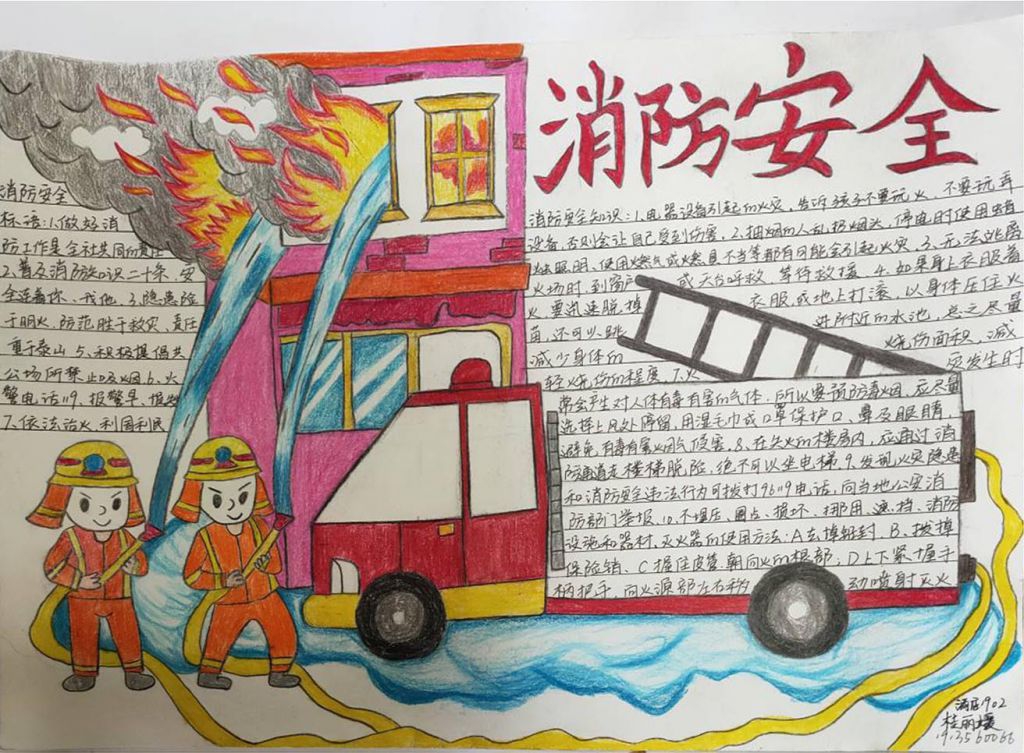 消防安全
消防安全
标语:1.做好消
防工作是全社共同的责任
2.普及消防知识二十条,安
全连着你、我他。3.隐患险
于明火,防范胜于救灾,责任
重于泰山 5.积极提倡共
公场所禁止吸烟 6.火
警电话119,报警早,损失
7.依法治火 利国利民
消防安全知识:1.电器设备引起的火灾,告诉孩子不要玩火,不要玩弄
设备,否则会让自己受到伤害。2.抽烟的人乱扔烟头,停电时使用蜡
烛照明,使用燃气或燃具不当等都有可能会引起火灾。3.无法逃离
火场时,到窗户 或天台呼救,等待救援 4.如果身上衣服着
火,要迅速脱掉 衣服或地上打滚,以身体压住火
苗,还可以跳 进附近的水池,总之尽量
减少身体的 烧伤面积,减
轻烧伤的程度 7.火 灾发生时
常会产生对人体有毒有害的气体,所以要预防毒烟,应尽量
选择上风处停留,用湿毛巾或口罩保护口、鼻及眼睛,
避免有毒有害烟气侵害。8.在失火的楼房内,应通过消
防通道走楼梯脱险,绝不可以坐电梯 9.发现火灾隐患
和消防安全违法行为可拨打96119电话,向当地公安消
防部门举报。10.不埋压、圈占、损坏、挪用、遮挡、消防
设施和器材,灭火器的使用方法:A去掉铅封,B、拔掉
保险销,C握住皮管,朝向火的根部;D上下紧握手
柄把手,向火源部左右移 动喷射灭火
酒店1902
桂丽